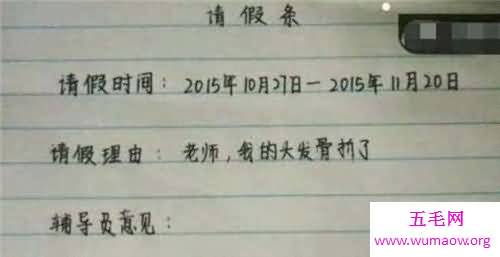 请假条
请假时间：2015年10月27日—2015年11月20日
请假理由：老师，我的头发骨折了
辅导员意见：
五毛网
www.wumaow.org